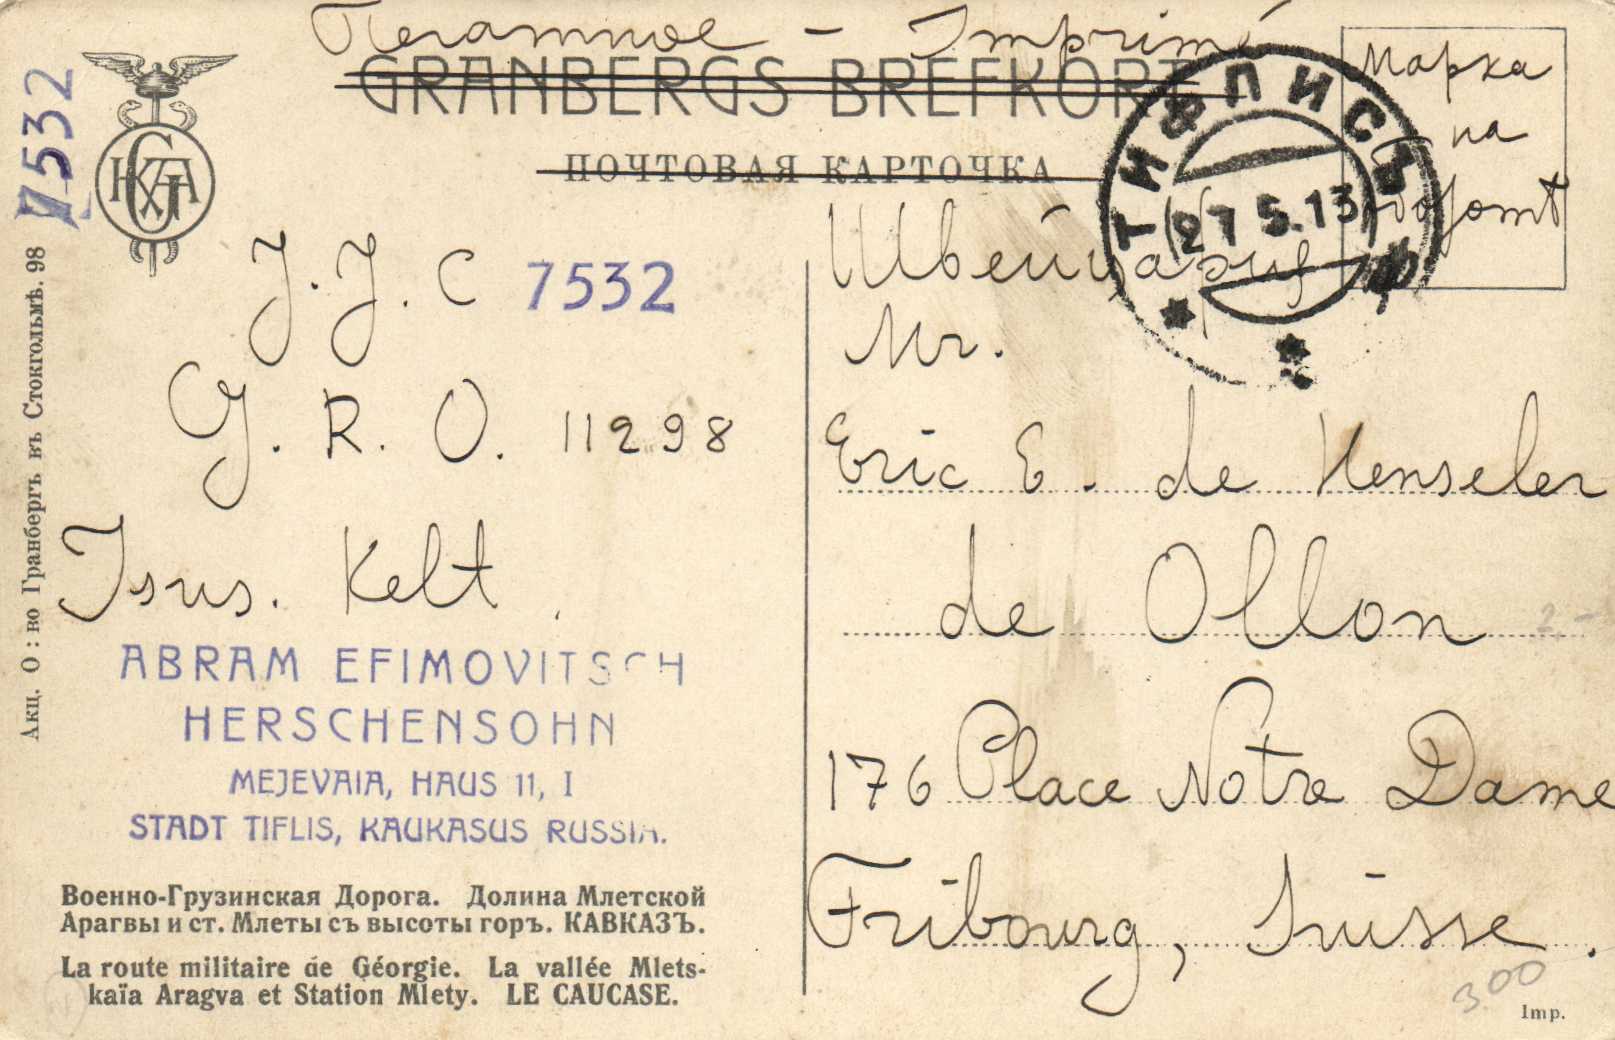 Печатное - Imprimé
GRANBERGS BREFKORT
ПОЧТОВАЯ КАРТОЧКА
Марка
на
ТИФЛИСЪ
27 5.13
7532
Акц. О: во Гранбергъ въ Стокгольмѣ. 98
J. J. C 7532
G. R. O. 11298
Isus. Kelt
ABRAM EFIMOVITSCH
HERSCHENSOHN
MEJEVAIA, HAUS 11, I
STADT TIFLIS, KAUKASUS RUSSIA.
Военно-Грузинская Дорога. Долина Млетской
Арагвы и ст. Млеты съ высоты горъ. КАВКАЗЪ.
La route militaire de Géorgie. La vallée Mlets-
kaïa Aragva et Station Mlety. LE CAUCASE.
Швейцария
Mr.
Eric E. de Henseler
de Ollon
2.-
176 Place Notre Dame
Fribourg, Suisse.
3.00
Imp.